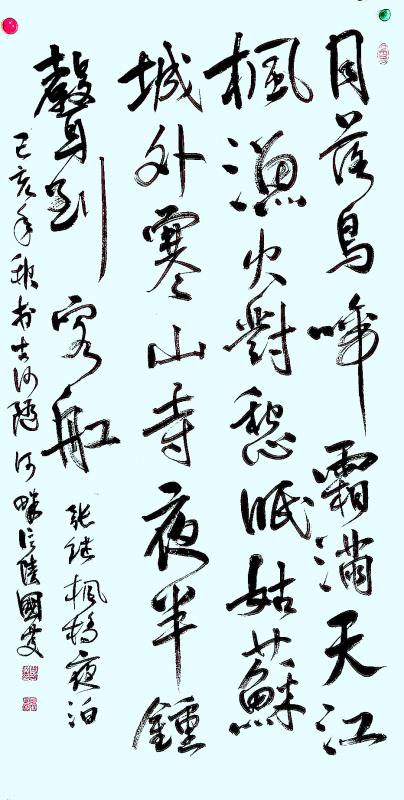 月落烏啼霜滿天江
楓漁火對愁眠姑蘇
城外寒山寺夜半鍾
聲到客船
张继楓橋夜泊
己亥年秋於古河畔國